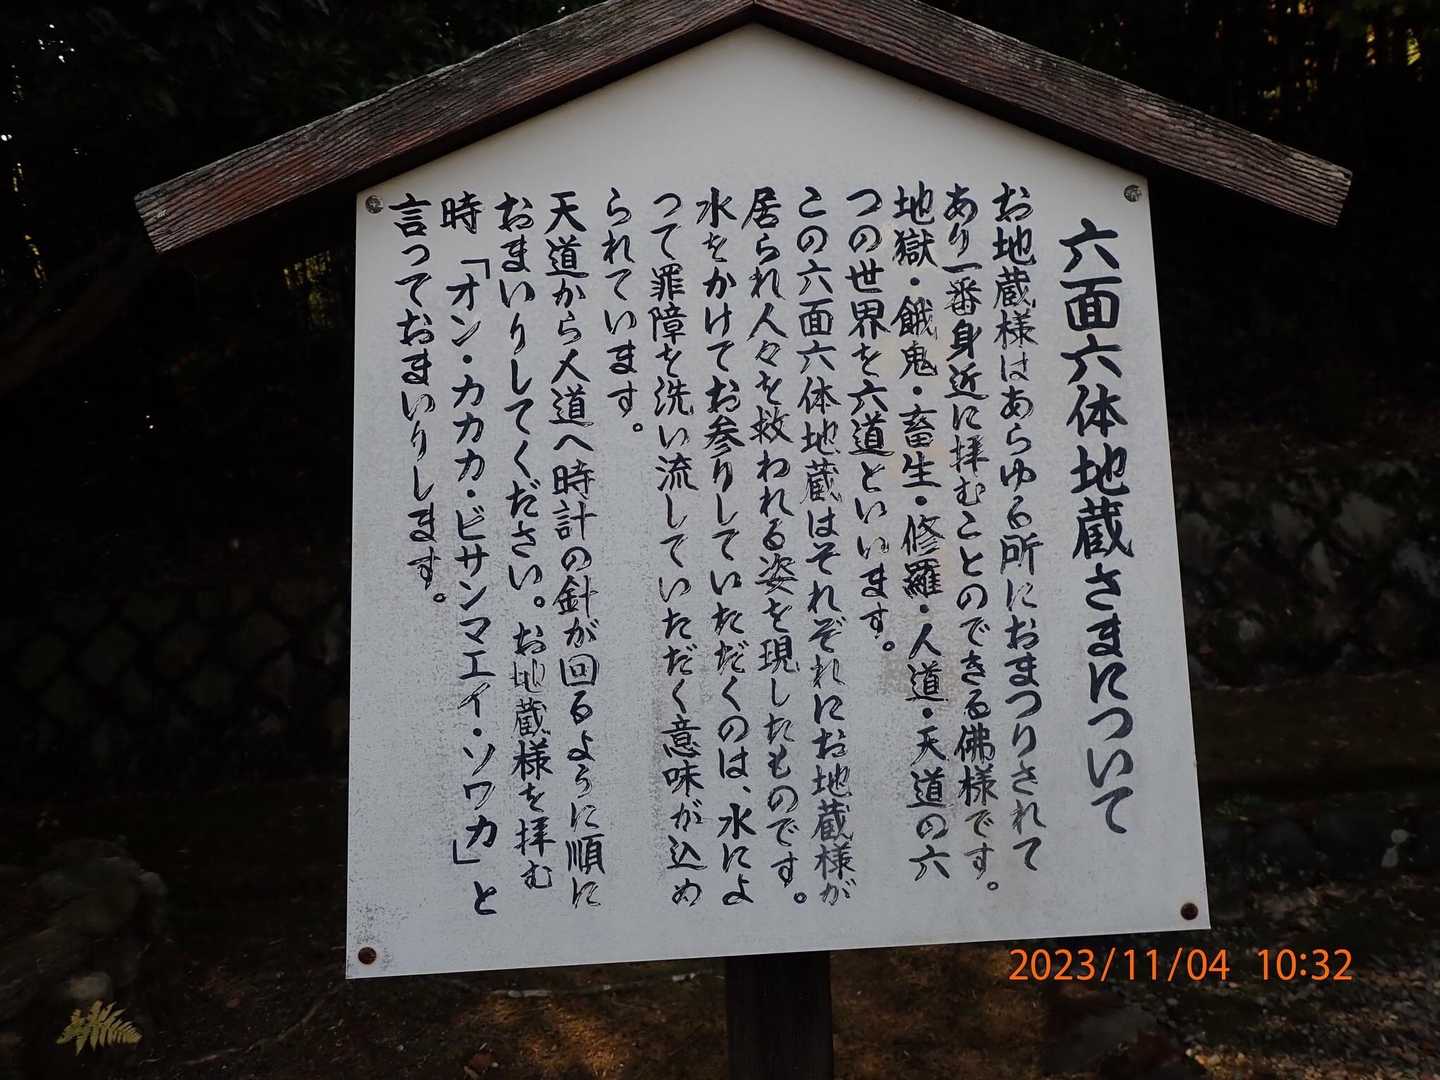 六面六体地蔵さまについて
お地蔵様はあらゆる所におまつりされて
あり一番身近に拝むことのできる佛様です。
地獄・餓鬼・畜生・修羅・人道・天道の六
つの世界を六道といいます。
この六面六体地蔵はそれぞれにお地蔵様が
居られ人々を救われる姿を現したものです。
水をかけてお参りしていただくのは、水によ
って罪障を洗い流していただく意味が込め
られています。
天道から人道へ時計の針が回るように順に
おまいりしてください。お地蔵様を拝む
時「オン・カカカ・ビサンマエイ・ソワカ」と
言っておまいりします。
2023/11/04 10:32